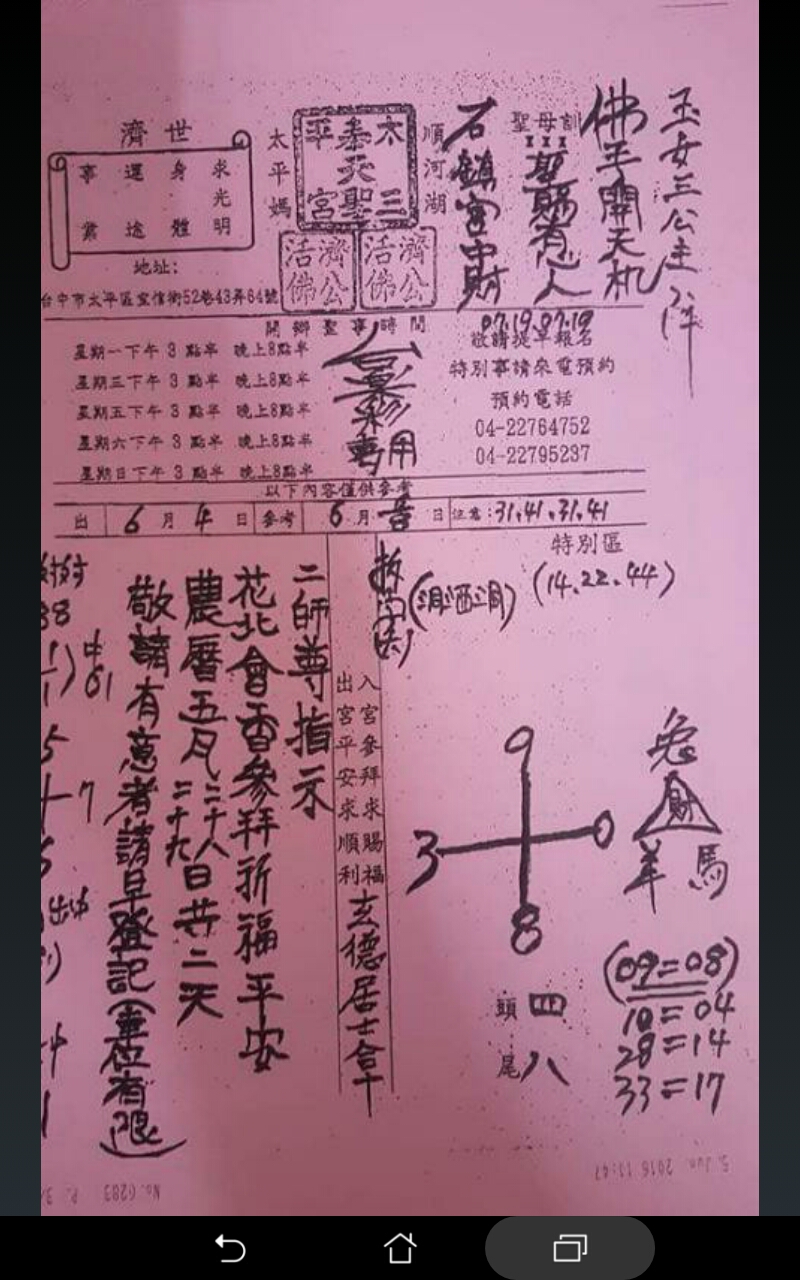 玉女三公主降
佛手開天机
聖母訓
聖賜有心人
石鎮宮中財
順河湖
太三
泰天聖
平宮
太平媽
濟公活佛
濟公活佛
濟世
求光明
身體
運途
事業
地址:
台中市太平區宜信街52巷43弄64號
07.19.07.19
開鄉聖事時間
星期一下午 3 點半 晚上8點半
星期三下午 3 點半 晚上8點半
星期五下午 3 點半 晚上8點半
星期六下午 3 點半 晚上8點半
星期日下午 3 點半 晚上8點半
台彩專用
敬請提早報名
特別事請來電預約
預約電話
04-22764752
04-22795237
以下內容僅供參考
出 6 月 4 日 參考 6 月 日 注意:31.41.31.41
特別區
(14.22.44)
兔
財
羊 馬
9
3 0
8
(09=08)
10=04
28=14
33=17
頭 四
尾 八
入宮參拜求賜福
出宮平安求順利
玄德居士合十
二師尊指示
花北會香參拜祈福平安
農曆五月二十八二十九日共二天
敬請有意者請早登記(車位有限)
5. Jun. 2016 11:47
No. 6283 P. 3